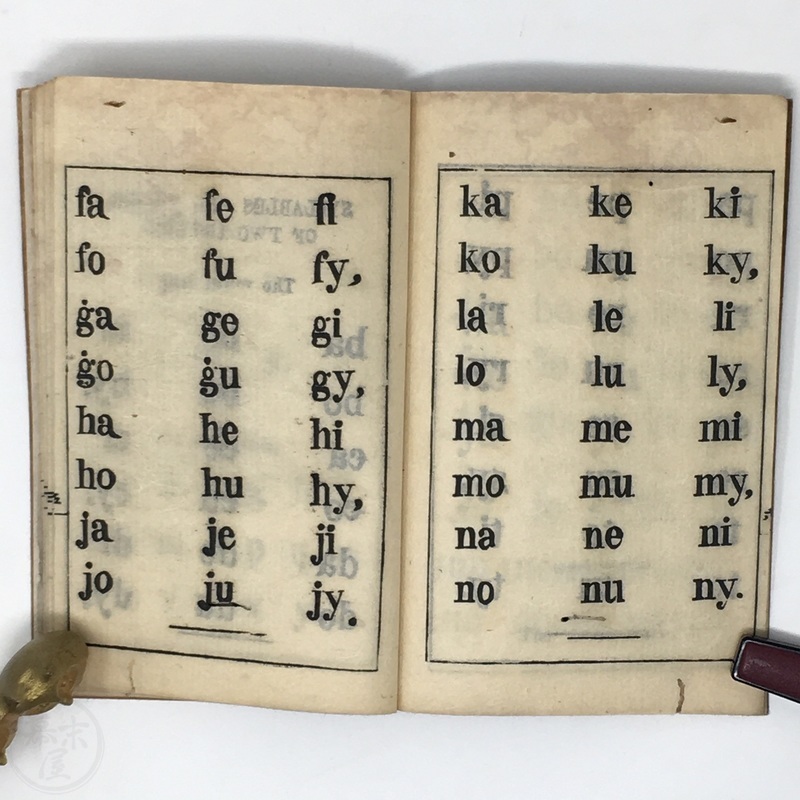 fa fe fi
fo fu fy,
ġa ge gi
ġo ġu gy,
ha he hi
ho hu hy,
ja je ji
jo ju jy.
ka ke ki
ko ku ky,
la le li
lo lu ly,
ma me mi
mo mu my,
na ne ni
no nu ny.